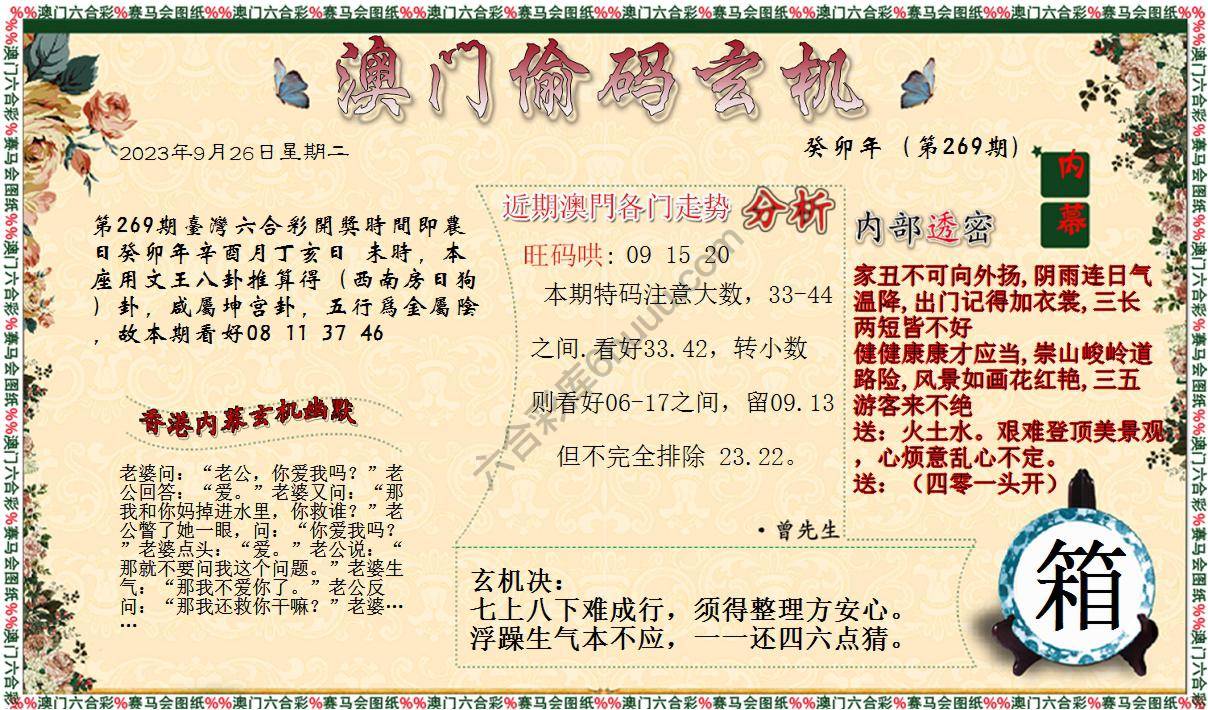 %%澳门六合彩%赛马会图纸%%澳门六合彩%赛马会图纸%%澳门六合彩%赛马会图纸%%澳门六合彩%赛马会图纸%%澳门六合彩%赛马会图纸%%澳门六合彩%赛马会图纸%%
澳门偷码玄机
2023年9月26日星期二
癸卯年（第269期）
内幕
第269期臺灣六合彩開獎時間即農
日癸卯年辛酉月丁亥日 未時，本
座用文王八卦推算得（西南房日狗
）卦，咸屬坤宫卦，五行爲金屬陰
，故本期看好08 11 37 46
香港内幕玄机幽默
老婆问：“老公，你爱我吗？”老
公回答：“爱。”老婆又问：“那
我和你妈掉进水里，你救谁？”老
公瞥了她一眼，问：“你爱我吗？
”老婆点头：“爱。”老公说：“
那就不要问我这个问题。”老婆生
气：“那我不爱你了。”老公反
问：“那我还救你干嘛？”老婆…
…
近期澳門各门走势 分析
旺码哄: 09 15 20
本期特码注意大数，33-44
之间.看好33.42，转小数
则看好06-17之间，留09.13
但不完全排除 23.22。
·曾先生
六合彩库6huuu.com
内部透密
家丑不可向外扬,阴雨连日气
温降,出门记得加衣裳,三长
两短皆不好
健健康康才应当,崇山峻岭道
路险,风景如画花红艳,三五
游客来不绝
送：火土水。艰难登顶美景观
，心烦意乱心不定。
送：（四零一头开）
玄机决：
七上八下难成行，须得整理方安心。
浮躁生气本不应，一一还四六点猜。
箱
%%澳门六合彩%赛马会图纸%%澳门六合彩%赛马会图纸%%澳门六合彩%赛马会图纸%%澳门六合彩%赛马会图纸%%澳门六合彩%赛马会图纸%%澳门六合彩%赛马会图纸%%